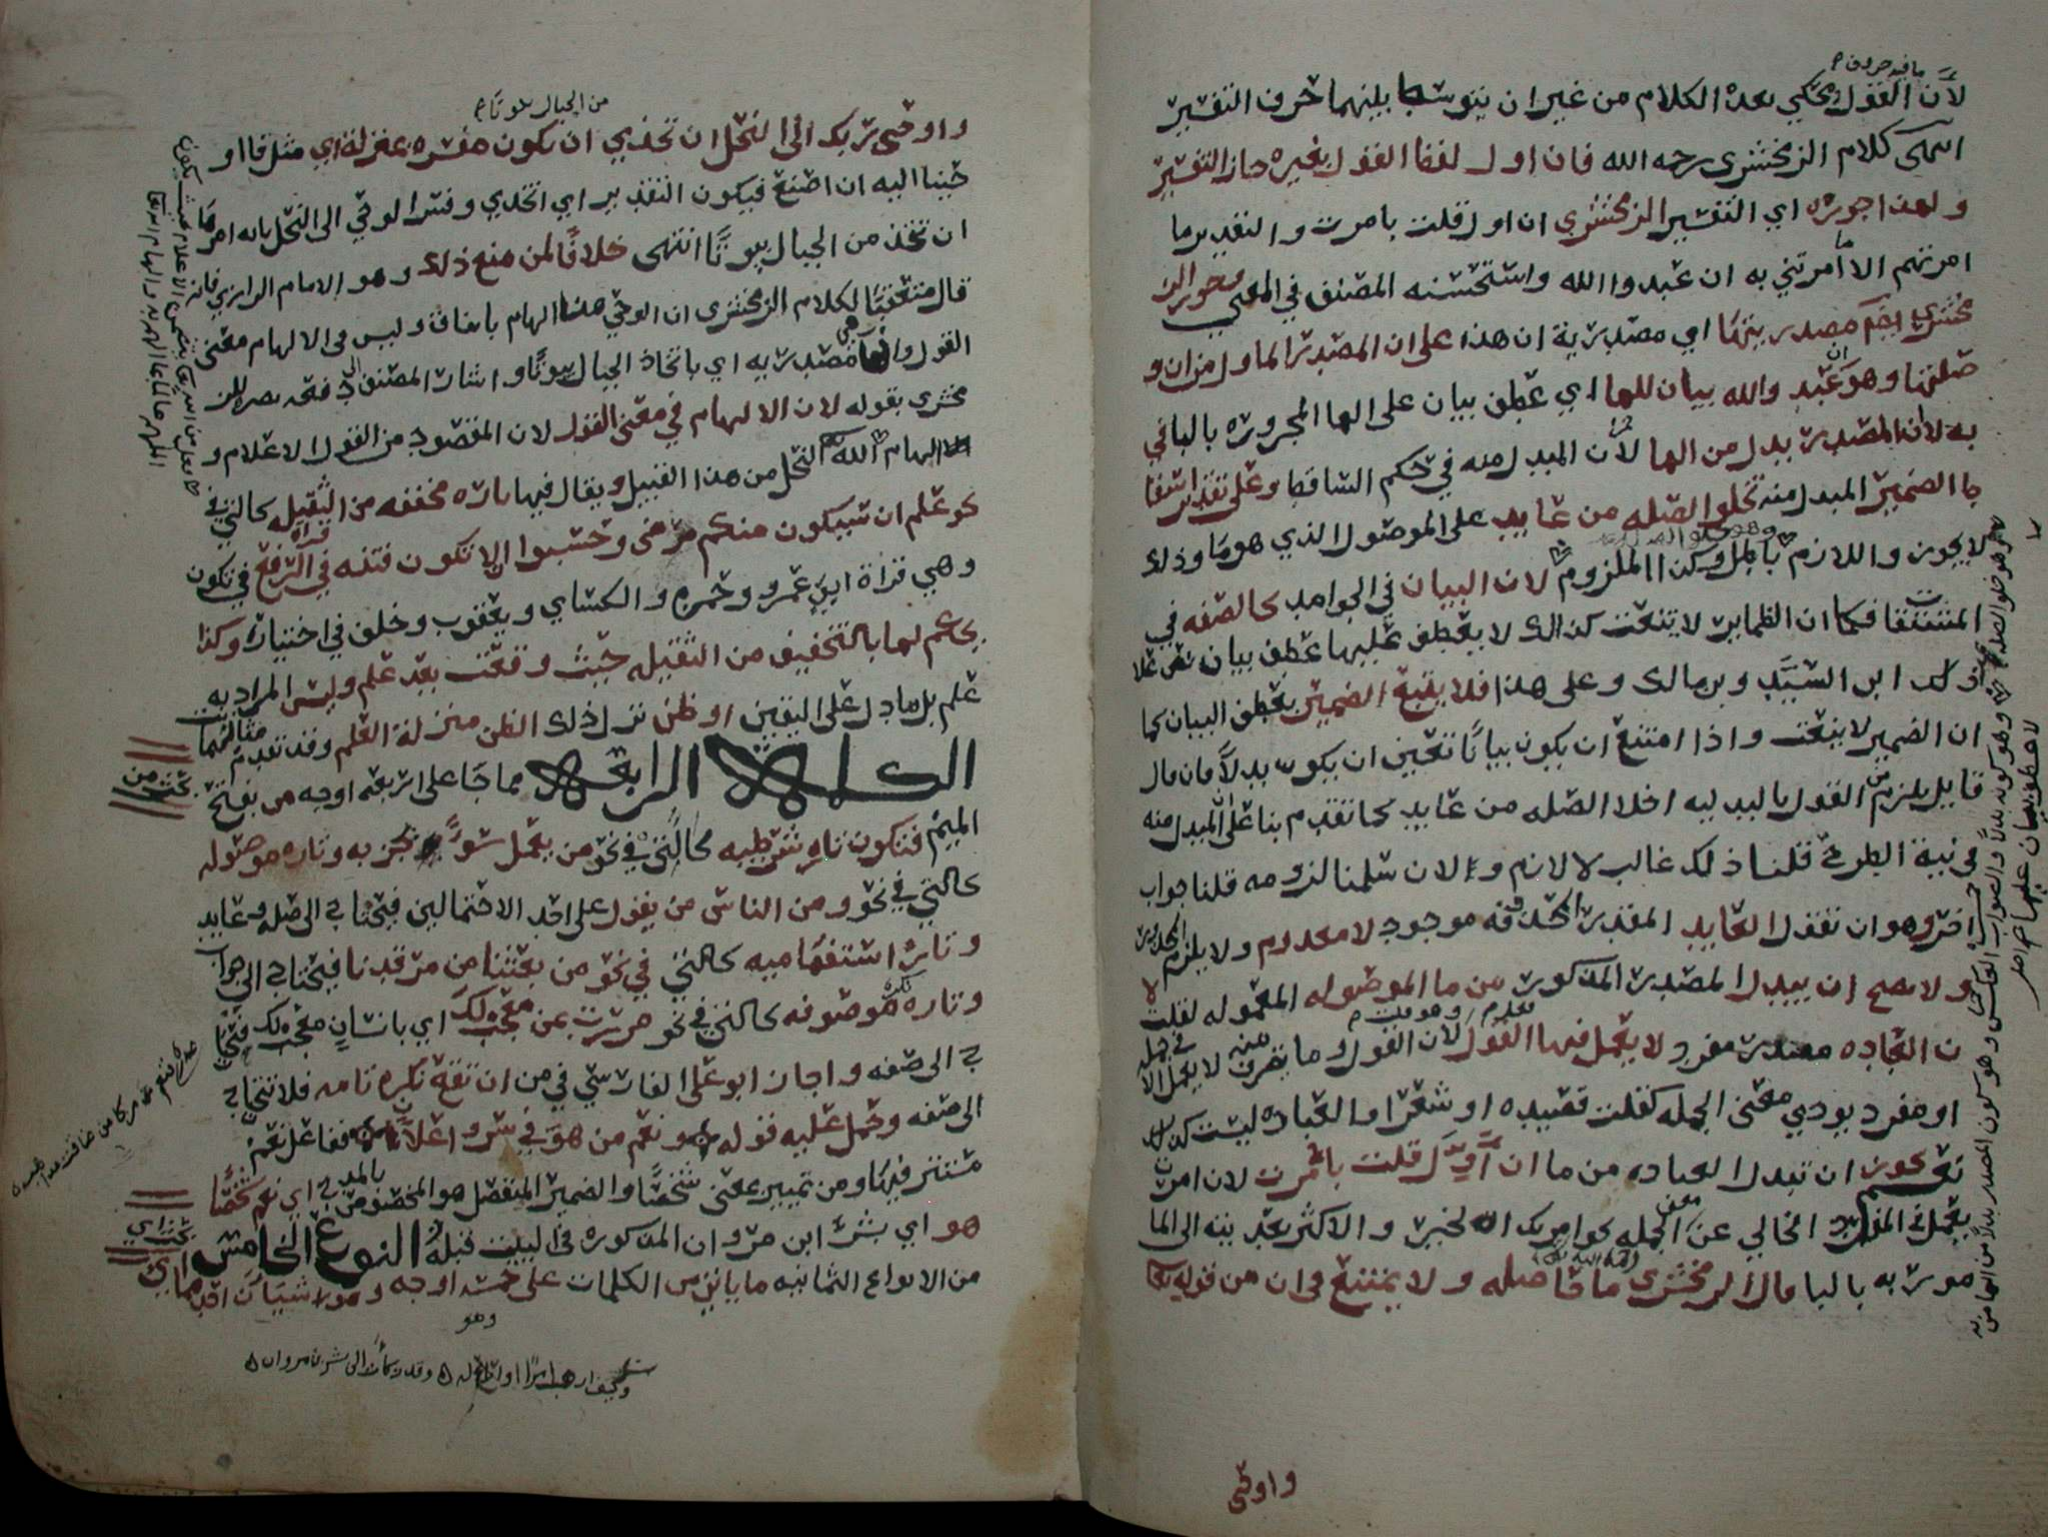 ما فيه حروف
لأن القول يحكي بعده الكلام من غير ان يتوسط بينهما حرف التفسير
انتهى كلام الزمخشري رحمه الله فان اول لفظ القول بغيره جاز التفسير
ولهذا جوزه اي التفسير الزمخشري ان اول قلت بامرت والتقدير ما
امرتهم الا ما امرتني به ان عبدوا الله واستحسنه المصنف في المغني وجوز الز
مخشري ايضا مصدريتها اي مصدرية ان هذا على ان المصدر الماول من ان و
صلتها وهو ان عبد والله بيان للها اي عطف بيان على الها المجروره بالبا في
به لا ان المصدر بدل من الها لأن المبدل منه في حكم الساقط وعلى تقدير اسقا
ط الضمير المبدل منه تخلو الصله من عايد على الموصول الذي هو ما وذلك
لا يجوز واللازم باطل وكذا الملزوم لان البيان في الجوامد كالصفه في
المشتقات فكما ان الظماير لا تنعت كذلك لا يعطف عليها عطف بيان نص على
ذلك ابن السيد وبن مالك وعلى هذا فلا يتبع الضمير بعطف البيان كما
ان الضمير لا ينعت واذا امتنع ان يكون بيانا تعين ان يكون بدلا فان قال
قايل يلزم من القول بالبدليه اخلا الصله من عايد كما تقدم بنا على ان المبدل منه
في نية الطرح قلنا ذلك غالب لا لازم ولان سلمنا لزومه قلنا جواب
اخر وهو ان نقول العايد المقدر الحذف فه موجود لا معدوم ولا يلزم المحذور
ولا يصح ان يبدل المصدر المذكور من ما الموصوله المعموله لقلت لا
ن العباده مصدر مفرد لا يعمل فيها القول لأن القول وما يتصرف منه لا يعمل الا في جمله
او مفرد يودي معنى الجمله كقلت قصيده او شعرا والعباده ليست كذلك
نعم يجوز ان تبدل العباده من ما ان أول قلت بأمرت لان امرت
يعمل في المفرد الخالي عن معنى الجمله نحو امرتك الخير والاكثر تعديته الى الما
مور به بالبا قال الزمخشري ما حاصله ولا يمتنع في ان من قوله تعا
واوحى
من الجبال بيوتا
واوحى ربك الى النحل ان تخذي ان يكون مفسره بمنزلة اي مثل فاو
حينا اليه ان اصنع فيكون التقدير اي اتخذي وفسر الوحي الى النحل بانه امرها
ان تتخذ من الجبال بيوتا انتهى خلافا لمن منع ذلك وهو الامام الرازي فانه
قال متعقبا لكلام الزمخشري ان الوحي هنا الهام باتفاق وليس في الالهام معنى
القول وانما هي مصدريه اي باتخاذ الجبال بيوتا واشار المصنف الى دفعه بنصر الز
مخشري بقوله لان الالهام في معنى القول لان المقصود من القول الاعلام و
الالهام الله النحل من هذا القبيل ويقال فيها تاره مخففه من الثقيله كالتي في
نحو علم ان سيكون منكم مرضى وحسبوا ان لا تكون فتنه في قراه الرفع في تكون
وهي قراة ابي عمرو وحمزه والكساي ويعقوب وخلف في اختياره وكذا
يحكم لها بالتخفيف من الثقيله حيث وقعت بعد علم وليس المراد به
علم بل ما دل على اليقين او ظن نزل ذلك الظن منزلة العلم وقد تقدم مثالهما
الكلمه الرابعه مما جا على اربعه اوجه من بفتح
بحث من
الميم فتكون تاره شرطيه كالتي في نحو من يعمل سوءا يجز به وتاره موصوله
كالتي في نحو ومن الناس من يقول على احد الاحتمالين فيحتاج الى صله وعايد
وتاره استفهاميه كالتي في نحو من بعثنا من مرقدنا فيحتاج الى جواب
وتاره نكره موصوفه كالتي في نحو مررت بمن معجب لك اي بانسان معجب لك فتحتا
ج الى صفه واجاز ابو علي الفارسي في من ان تقع نكره تامه فلا تحتاج
الى صفه وحمل عليه قوله ونعم من هو في سر واعلان ففاعل نعم
مستتر فيها ومن تمييز بمعنى شخصا والضمير المنفصل هو المخصوص بالمدح اي نعم شخصا
هو اي بشر ابن مروان المذكوره في البيت قبله النوع الخامس
بحث اي
من الانواع الثمانيه ما ياتي من الكلمات على خمسه اوجه وهو شيئان احدهما اي
وهو
وكيف ارهب امرا او اراع له وقد زكات الى بشر بن مروان